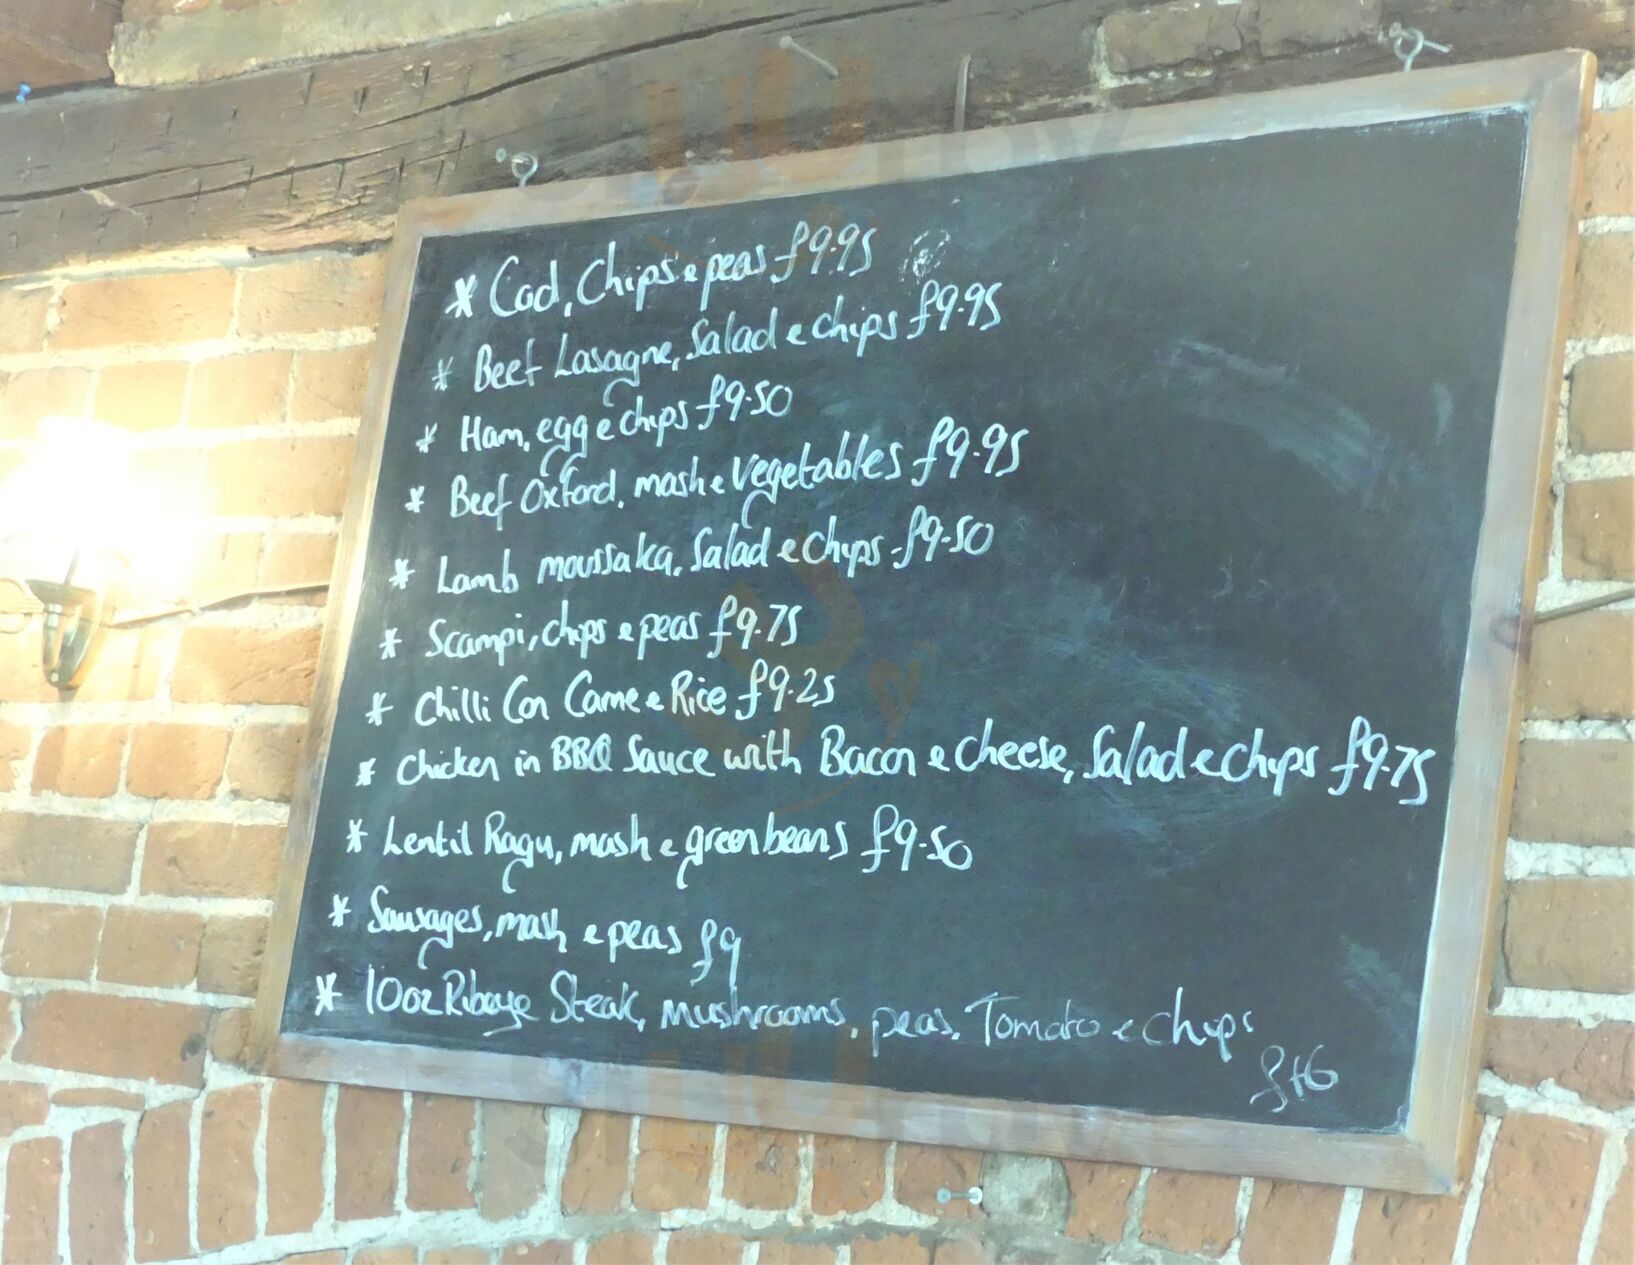 * Cod, Chips e peas £9.95
* Beef Lasagne, Salad e chips £9.95
* Ham, egg e chips £9.50
* Beef Oxford, mash e Vegetables £9.95
* Lamb moussaka, Salad e Chips £9.50
* Scampi, chips e peas £9.75
* Chilli Con Carne e Rice £9.25
* Chicken in BBQ Sauce with Bacon e Cheese, Salad e Chips £9.75
* Lentil Ragu, mash e green beans £9.50
* Sausages, mash e peas £9
* 10oz Ribeye Steak, Mushrooms, peas, Tomato e Chips
£16